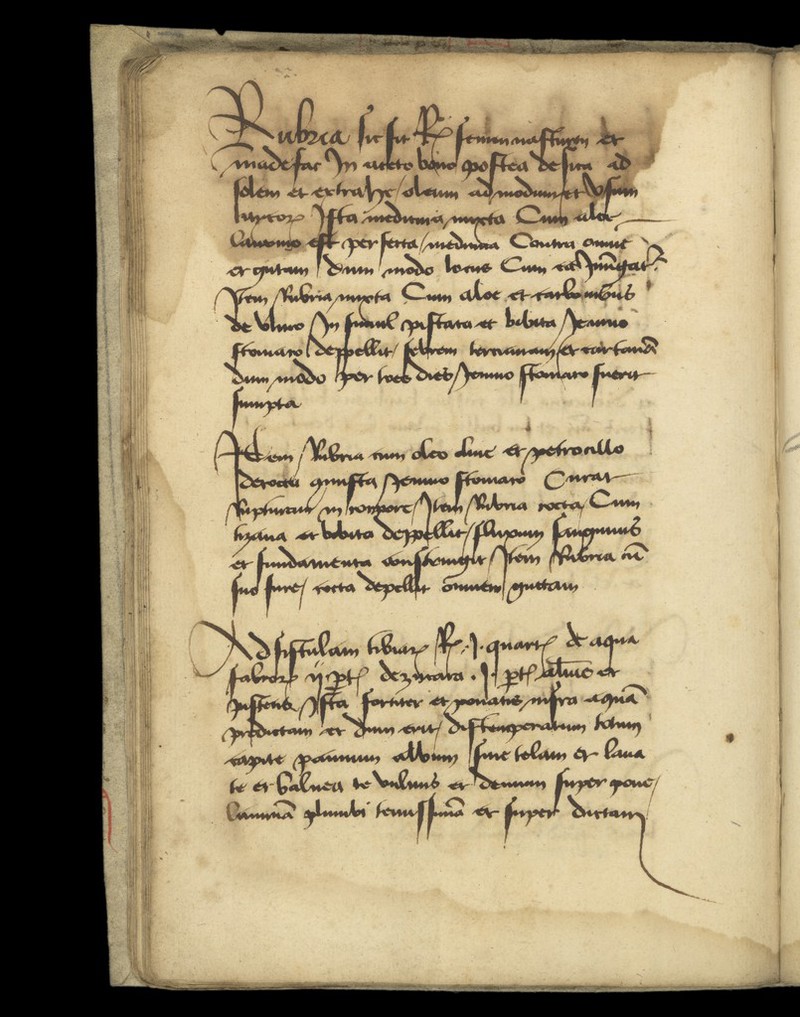 Rubria sic fit Rx semen nasturtii et
madefac In aceto bono postea desica ad
solem et extrahe oleum ad modum et vsum
Ista medicina mixta Cum aloe
est perfecta medicina Contra omne
et gutam dum modo locus Cum ea
Item Rubria mixta Cum aloe et carbonibus
de vlmo In simul pistata et bibita Jeiuno
stomaco deppellit febrem tercianam et cartanã
dum modo per toes dies Jeiuno stomaco fuerit
sumpta
Item Rubria cum oleo oliue et petrocillo
decocta Jeiuno stomaco Curat
Rupturam in corpore Item Rubria cocta Cum
tizana et bibita deppellit fluxum sanguinis
et fundamenta constringit Item Rubria cũ
suo sure cocta depellit omnem guctam
Ad fistulam tibiarꝫ Rx .J. quartꝫ de aqua
fabrorꝫ ij de .J. et
pistetis Ista fortiter et ponatis infra aquã
predictam et dum erit distemperatum totum
capite pannum album siue telam et laua
te et balnea te vulnus et demum super pone
laminã plumbi tenuissimã et super dictam